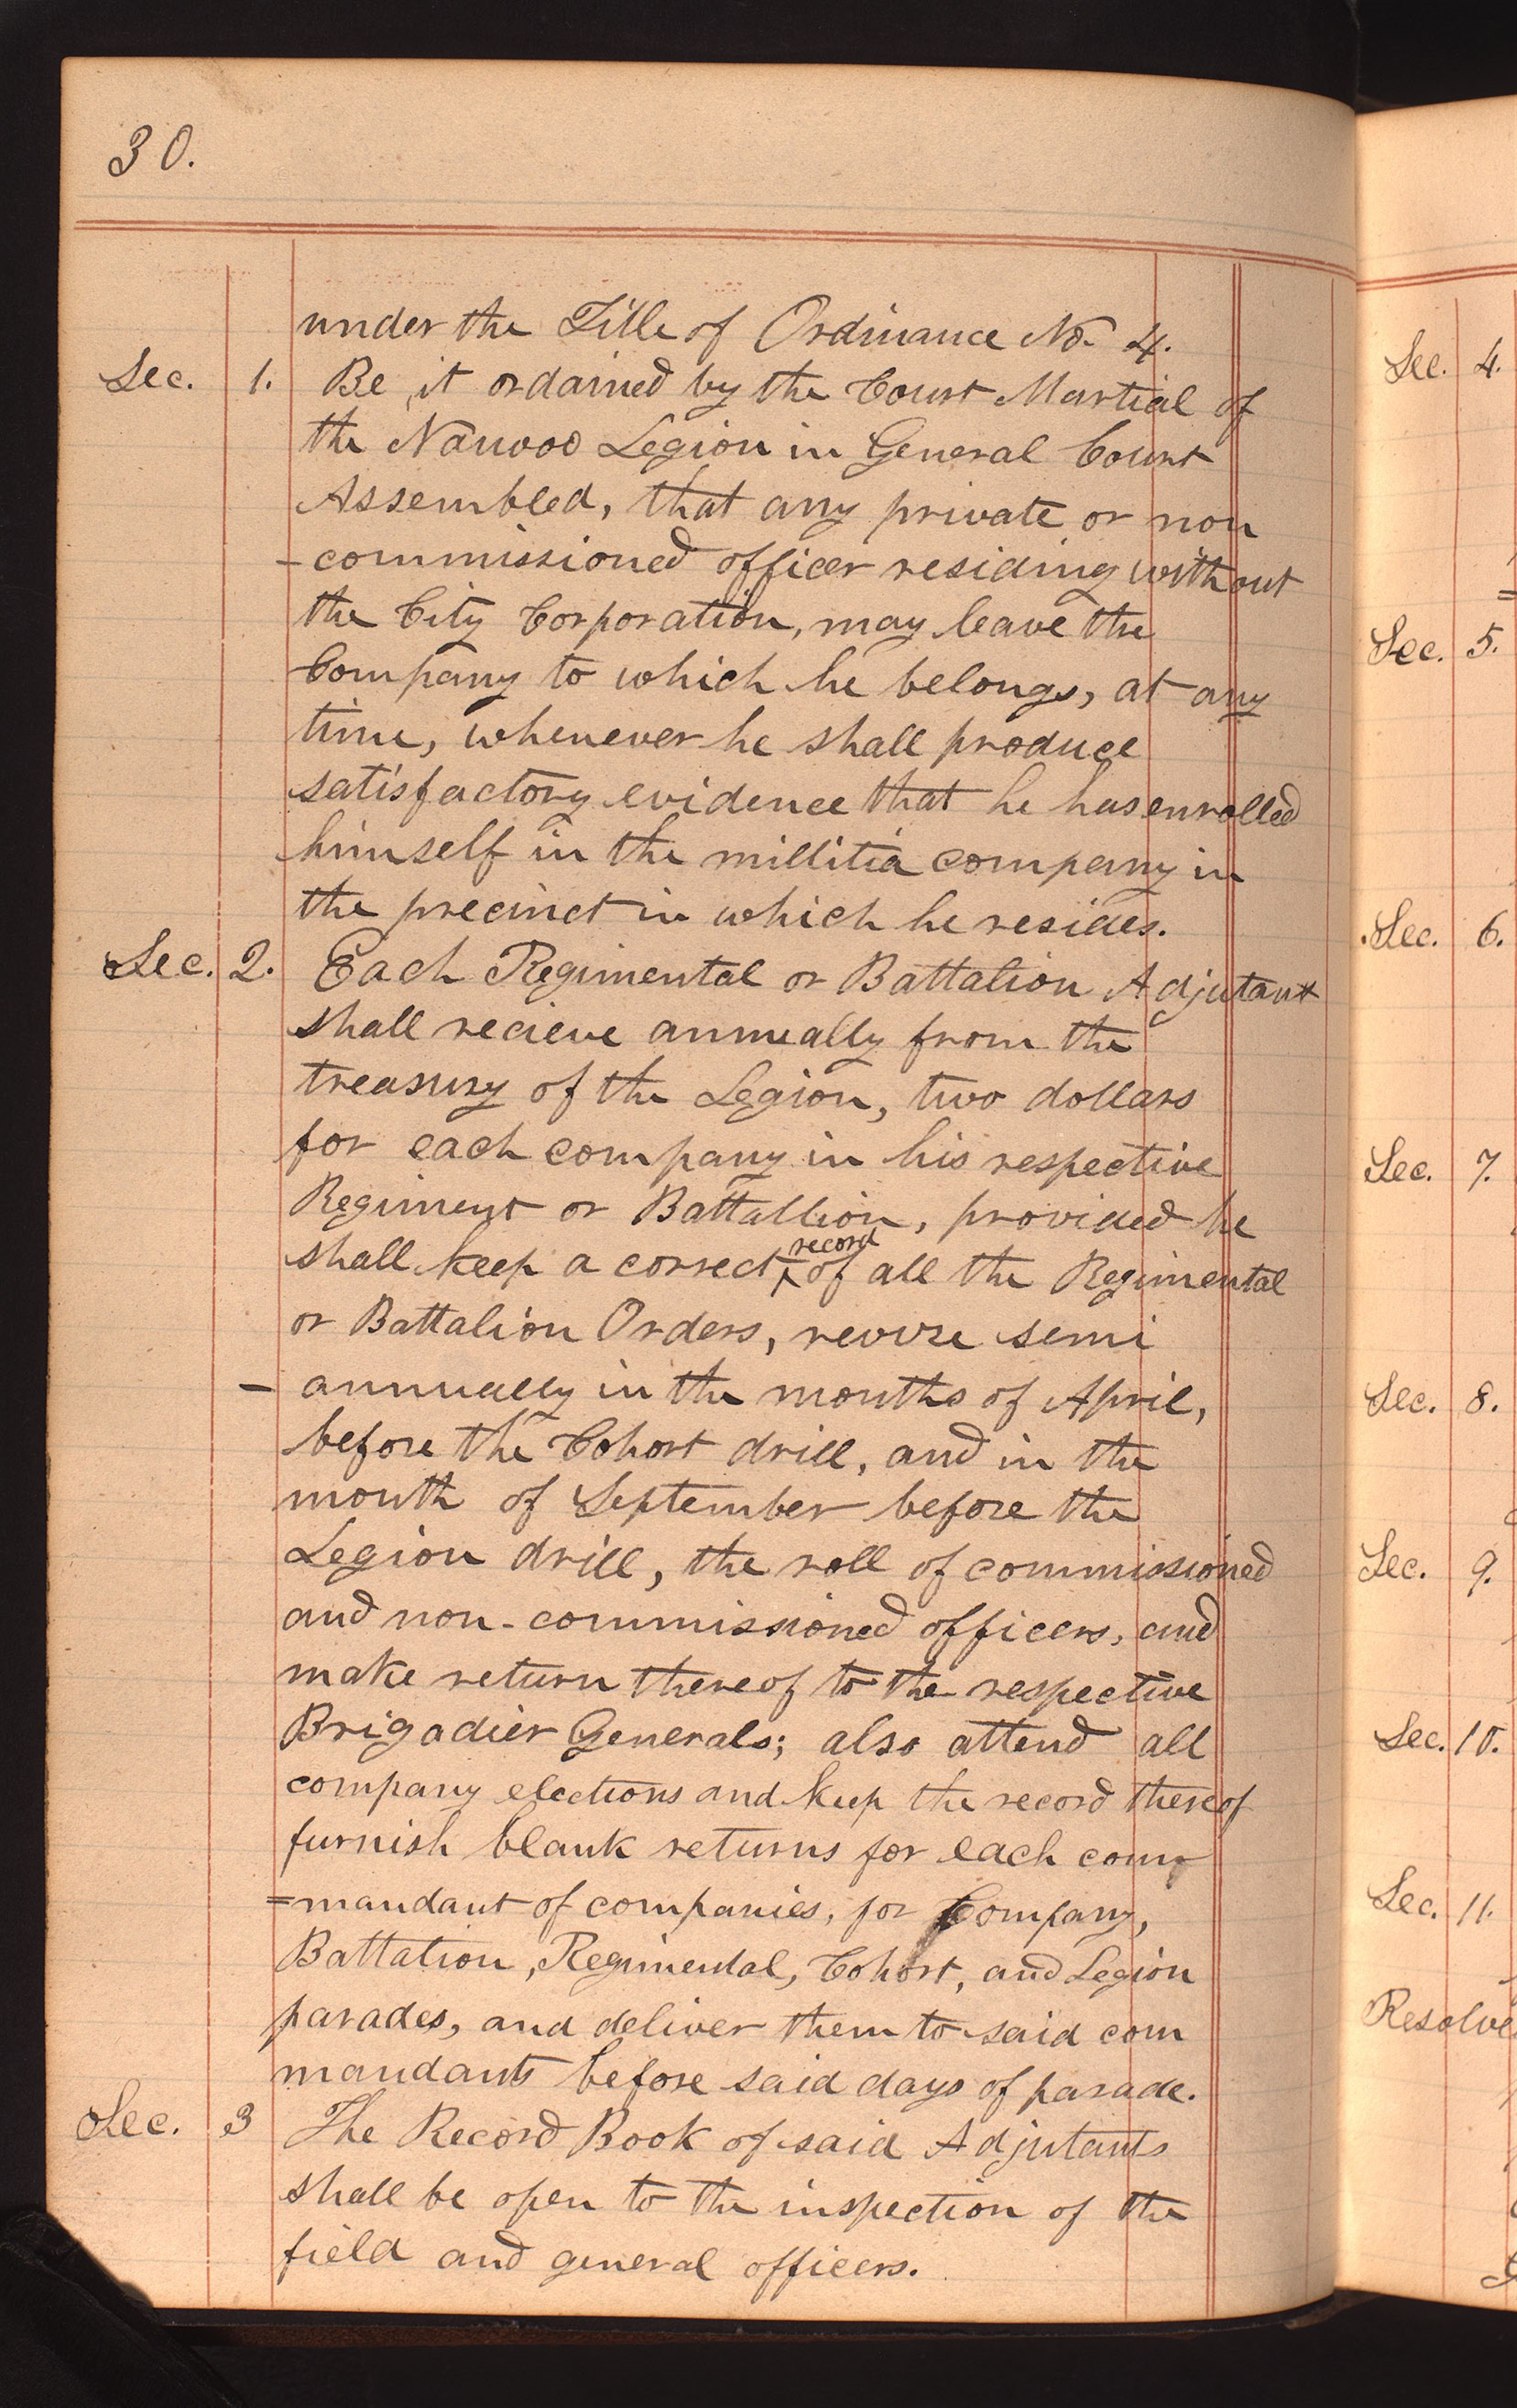 30.
under the Title of Ordinance No. 4.
Sec. 1. Be it ordained by the Court Martial of
the Nauvoo Legion in General Court
Assembled, that any private or non
-commissioned officer residing without
the City Corporation, may leave the
Company to which he belongs, at any
time, whenever he shall produce
satisfactory evidence that he has enrolled
himself in the millitia company in
the precinct in which he resides.
Sec. 2. Each Regimental or Battalion Adjutant
shall recieve annually from the
treasury of the Legion, two dollars
for each company in his respective
Regiment or Battallion, provided he
shall keep a correct record of all the Regimental
or Battalion Orders, revise semi
- annually in the months of April,
before the Cohort drill, and in the
month of September before the
Legion drill, the roll of commissioned
and non-commissioned officers, and
make return thereof to the respective
Brigadier Generals; also attend all
company elections and keep the record thereof
furnish blank returns for each com
=mandant of companies, for Company,
Battalion, Regimental, Cohort, and Legion
parades, and deliver them to said com
mandants before said days of parade.
Sec. 3 The Record Book of said Adjutants
shall be open to the inspection of the
field and general officers.
Sec. 4.
Sec. 5.
Sec. 6.
Sec. 7.
Sec. 8.
Sec. 9.
Sec. 10.
Sec. 11.
Resolve